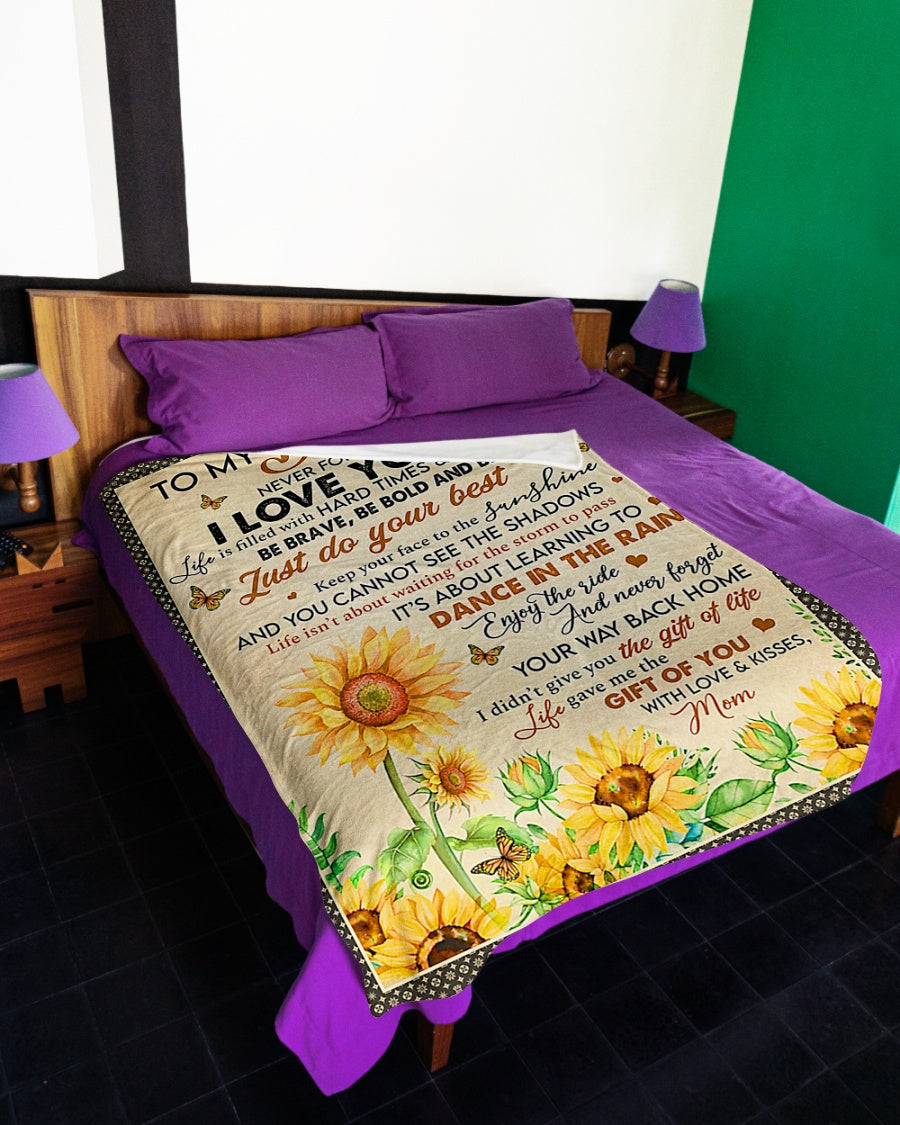 TO MY
NEVER FO
I LOVE YO
Life is filled with HARD TIMES &
BE BRAVE, BE BOLD AND
Just do your best
Keep your face to the Sunshine
AND YOU CANNOT SEE THE SHADOWS
Life isn't about waiting for the storm to pass
IT'S ABOUT LEARNING TO
DANCE IN THE RAIN
Enjoy the ride
And never forget
YOUR WAY BACK HOME
I didn't give you the gift of life
Life gave me the
GIFT OF YOU
WITH LOVE & KISSES,
Mom